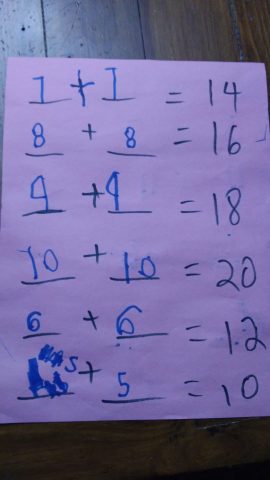 1 + 1 = 14
8 + 8 = 16
9 + 9 = 18
10 + 10 = 20
6 + 6 = 12
5 + 5 = 10